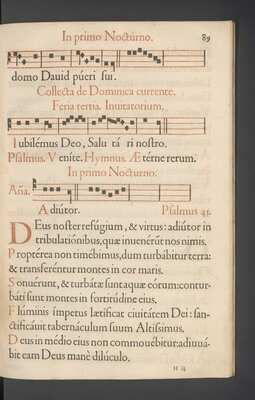 In primo Nocturno. 89
domo Dauid púeri sui.
Collecta de Dominica currente.
Feria tertia. Inuitatorium.
Iubilémus Deo, Salu tá ri nostro.
Psalmus. Veníte. Hymnus. Ætérne rerum.
In primo Nocturno.
Aña.
Adiútor. Psalmus 45.
DEus noster refúgium, & virtus: adiútor in
tribulatiónibus, quæ inuenérūt nos nimis.
Proptérea non timébimus, dum turbábitur terra:
& transferéntur montes in cor maris.
Sonuérunt, & turbátæ sunt aquæ eórum: contur-
báti sunt montes in fortitúdine eius.
Flúminis ímpetus lætíficat ciuitátem Dei: san-
ctificáuit tabernáculum suum Altíssimus.
Deus in médio eius non commouébitur: adiuuá-
bit eam Deus mane dilúculo.
H iij